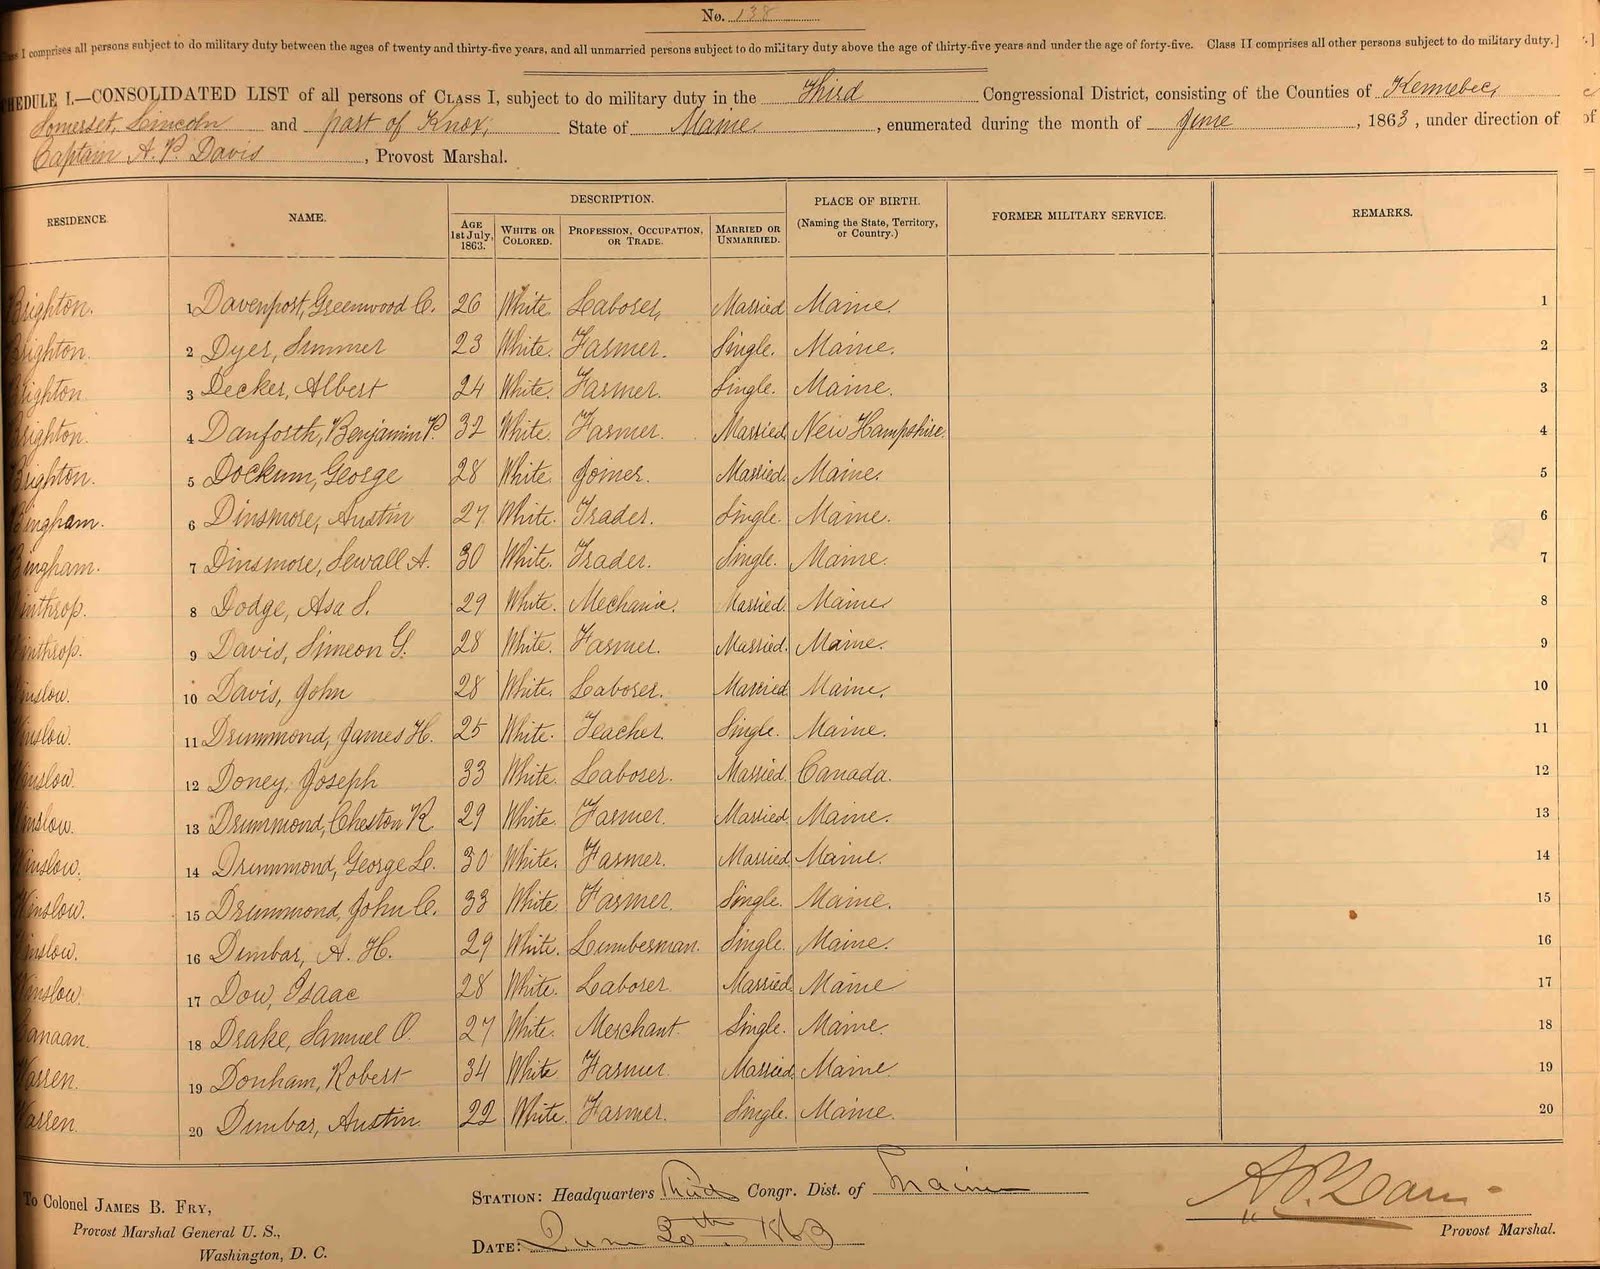 No. 138
I comprises all persons subject to do military duty between the ages of twenty and thirty-five years, and all unmarried persons subject to do military duty above the age of thirty-five years and under the age of forty-five. Class II comprises all other persons subject to do military duty.]
HEDULE I.—CONSOLIDATED LIST of all persons of CLASS I, subject to do military duty in the Third Congressional District, consisting of the Counties of Kennebec,
Somerset, Lincoln and part of Knox, State of Maine, enumerated during the month of June, 1863, under direction of
Captain A. P. Davis, Provost Marshal.
RESIDENCE. NAME. DESCRIPTION. PLACE OF BIRTH. (Naming the State, Territory, or Country.) FORMER MILITARY SERVICE. REMARKS.
AGE 1st July, 1863. WHITE OR COLORED. PROFESSION, OCCUPATION, OR TRADE. MARRIED OR UNMARRIED.
Brighton. 1 Davenport, Greenwood C. 26 White Laborer, Married Maine. 1
Brighton. 2 Dyer, Sumner 23 White. Farmer. Single. Maine. 2
Brighton 3 Decker, Albert 24 White. Farmer. Single. Maine. 3
Brighton. 4 Danforth, Benjamin P. 32 White. Farmer. Married New Hampshire. 4
Brighton. 5 Dockum, George 28 White. Joiner. Married. Maine. 5
Bingham. 6 Dinsmore, Austin 27 White. Trader. Single. Maine. 6
Bingham. 7 Dinsmore, Sewall A. 30 White. Trader. Single. Maine. 7
Winthrop. 8 Dodge, Asa S. 29 White. Mechanic. Married. Maine 8
Winthrop. 9 Davis, Simeon G. 28 White. Farmer. Married. Maine. 9
Winslow. 10 Davis, John 28 White. Laborer. Married Maine. 10
Winslow. 11 Drummond, James H. 25 White. Teacher. Single. Maine. 11
Winslow. 12 Doney, Joseph 33 White. Laborer. Married. Canada. 12
Winslow. 13 Drummond, Cheston R. 29 White. Farmer. Married. Maine. 13
Winslow. 14 Drummond, George L. 30 White. Farmer. Married Maine. 14
Winslow. 15 Drummond, John C. 33 White Farmer. Single. Maine. 15
Winslow. 16 Dunbar, A. H. 29 White. Lumberman. Single. Maine. 16
Winslow. 17 Dow, Isaac 28 White. Laborer Married Maine 17
Canaan. 18 Drake, Samuel O. 27 White. Merchant. Single. Maine. 18
Warren. 19 Donham, Robert 34 White Farmer. Married Maine. 19
Warren. 20 Dunbar, Austin 22 White. Farmer. Single. Maine. 20
To Colonel JAMES B. FRY,
Provost Marshal General U. S.,
Washington, D. C.
STATION: Headquarters Third Congr. Dist. of Maine
DATE: June 30th 1863
A. P. Davis
Provost Marshal.